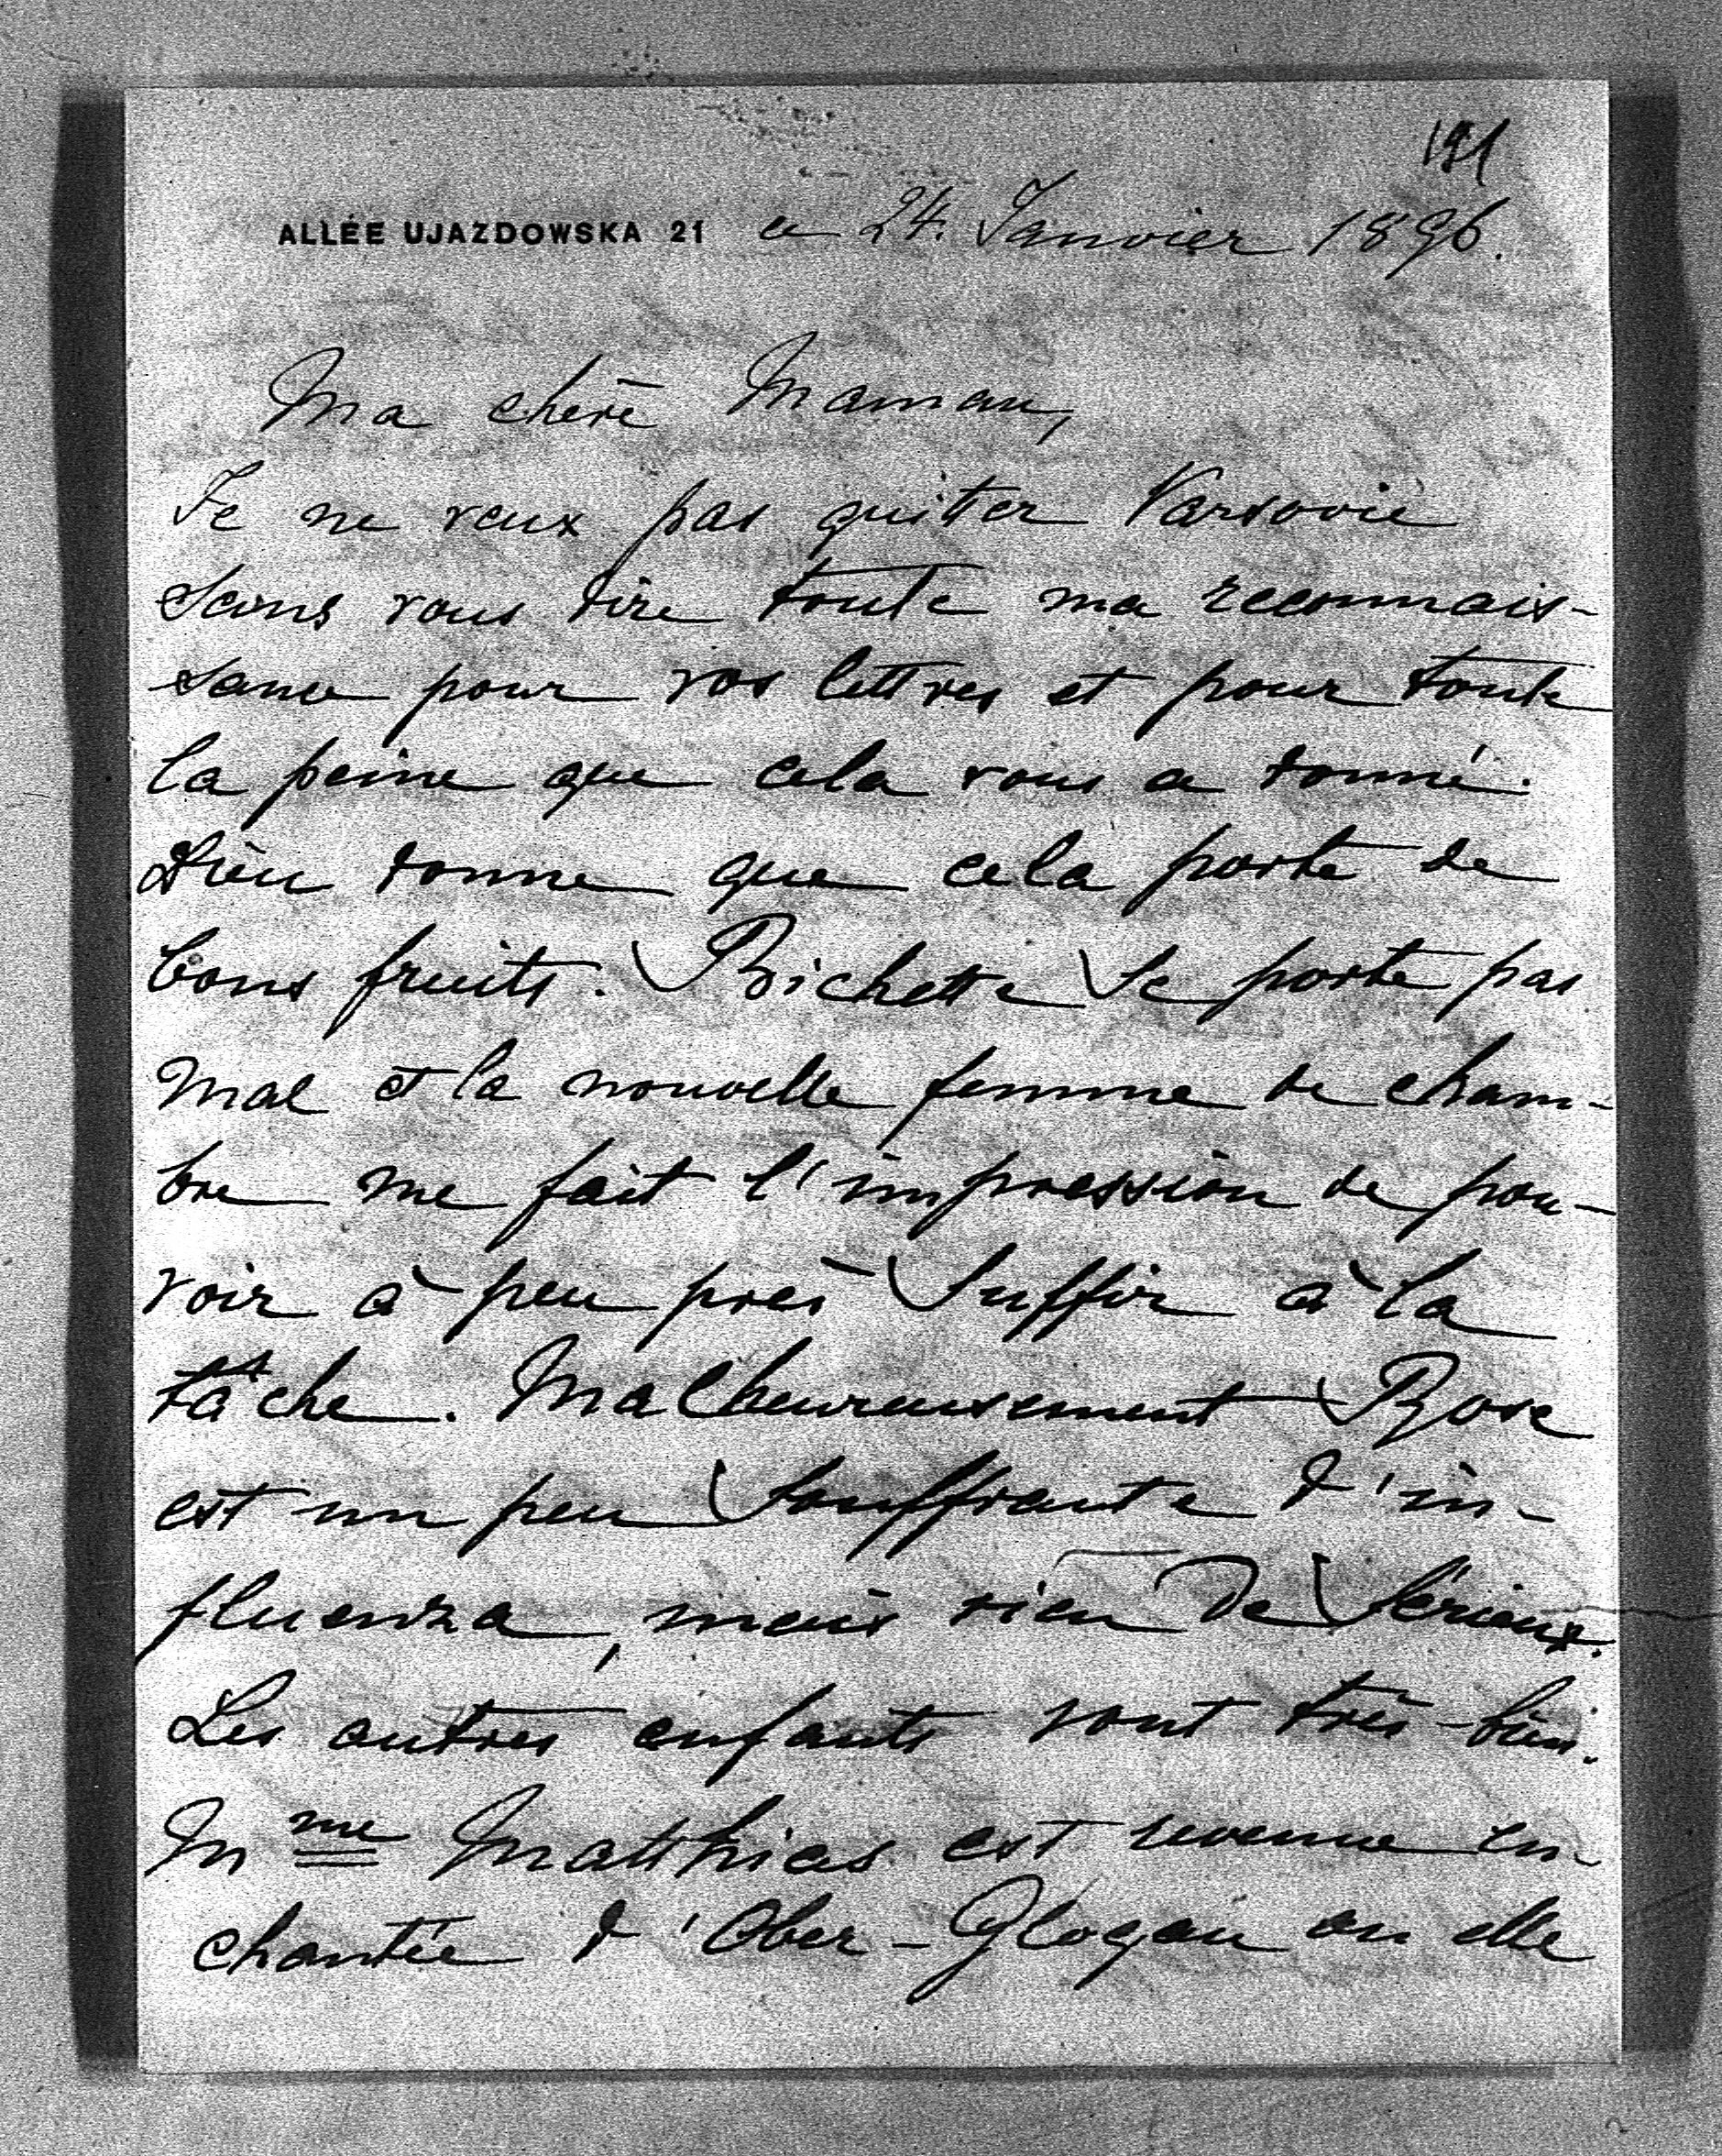 191
ALLÉE UJAZDOWSKA 21 ce 24. Janvier 1896.
Ma chère Maman,
Je ne veux pas quiter Varsovie
sans vous dire toute ma reconnais-
sance pour vos lettres et pour toute
la peine que cela vous a donné.
Dieu donne que cela porte de
bons fruits. Bichette se porte pas
mal et la nouvelle femme de cham-
bre me fait l'impression de pou-
voir à peu près suffir à la
tâche. Malheureusement Rose
est un peu souffrante d'in-
fluenza, mais rien de sérieux.
Les autres enfants vont très-bien.
Mme Matthias est revenue en-
chantée d'Ober-Glogau ou elle